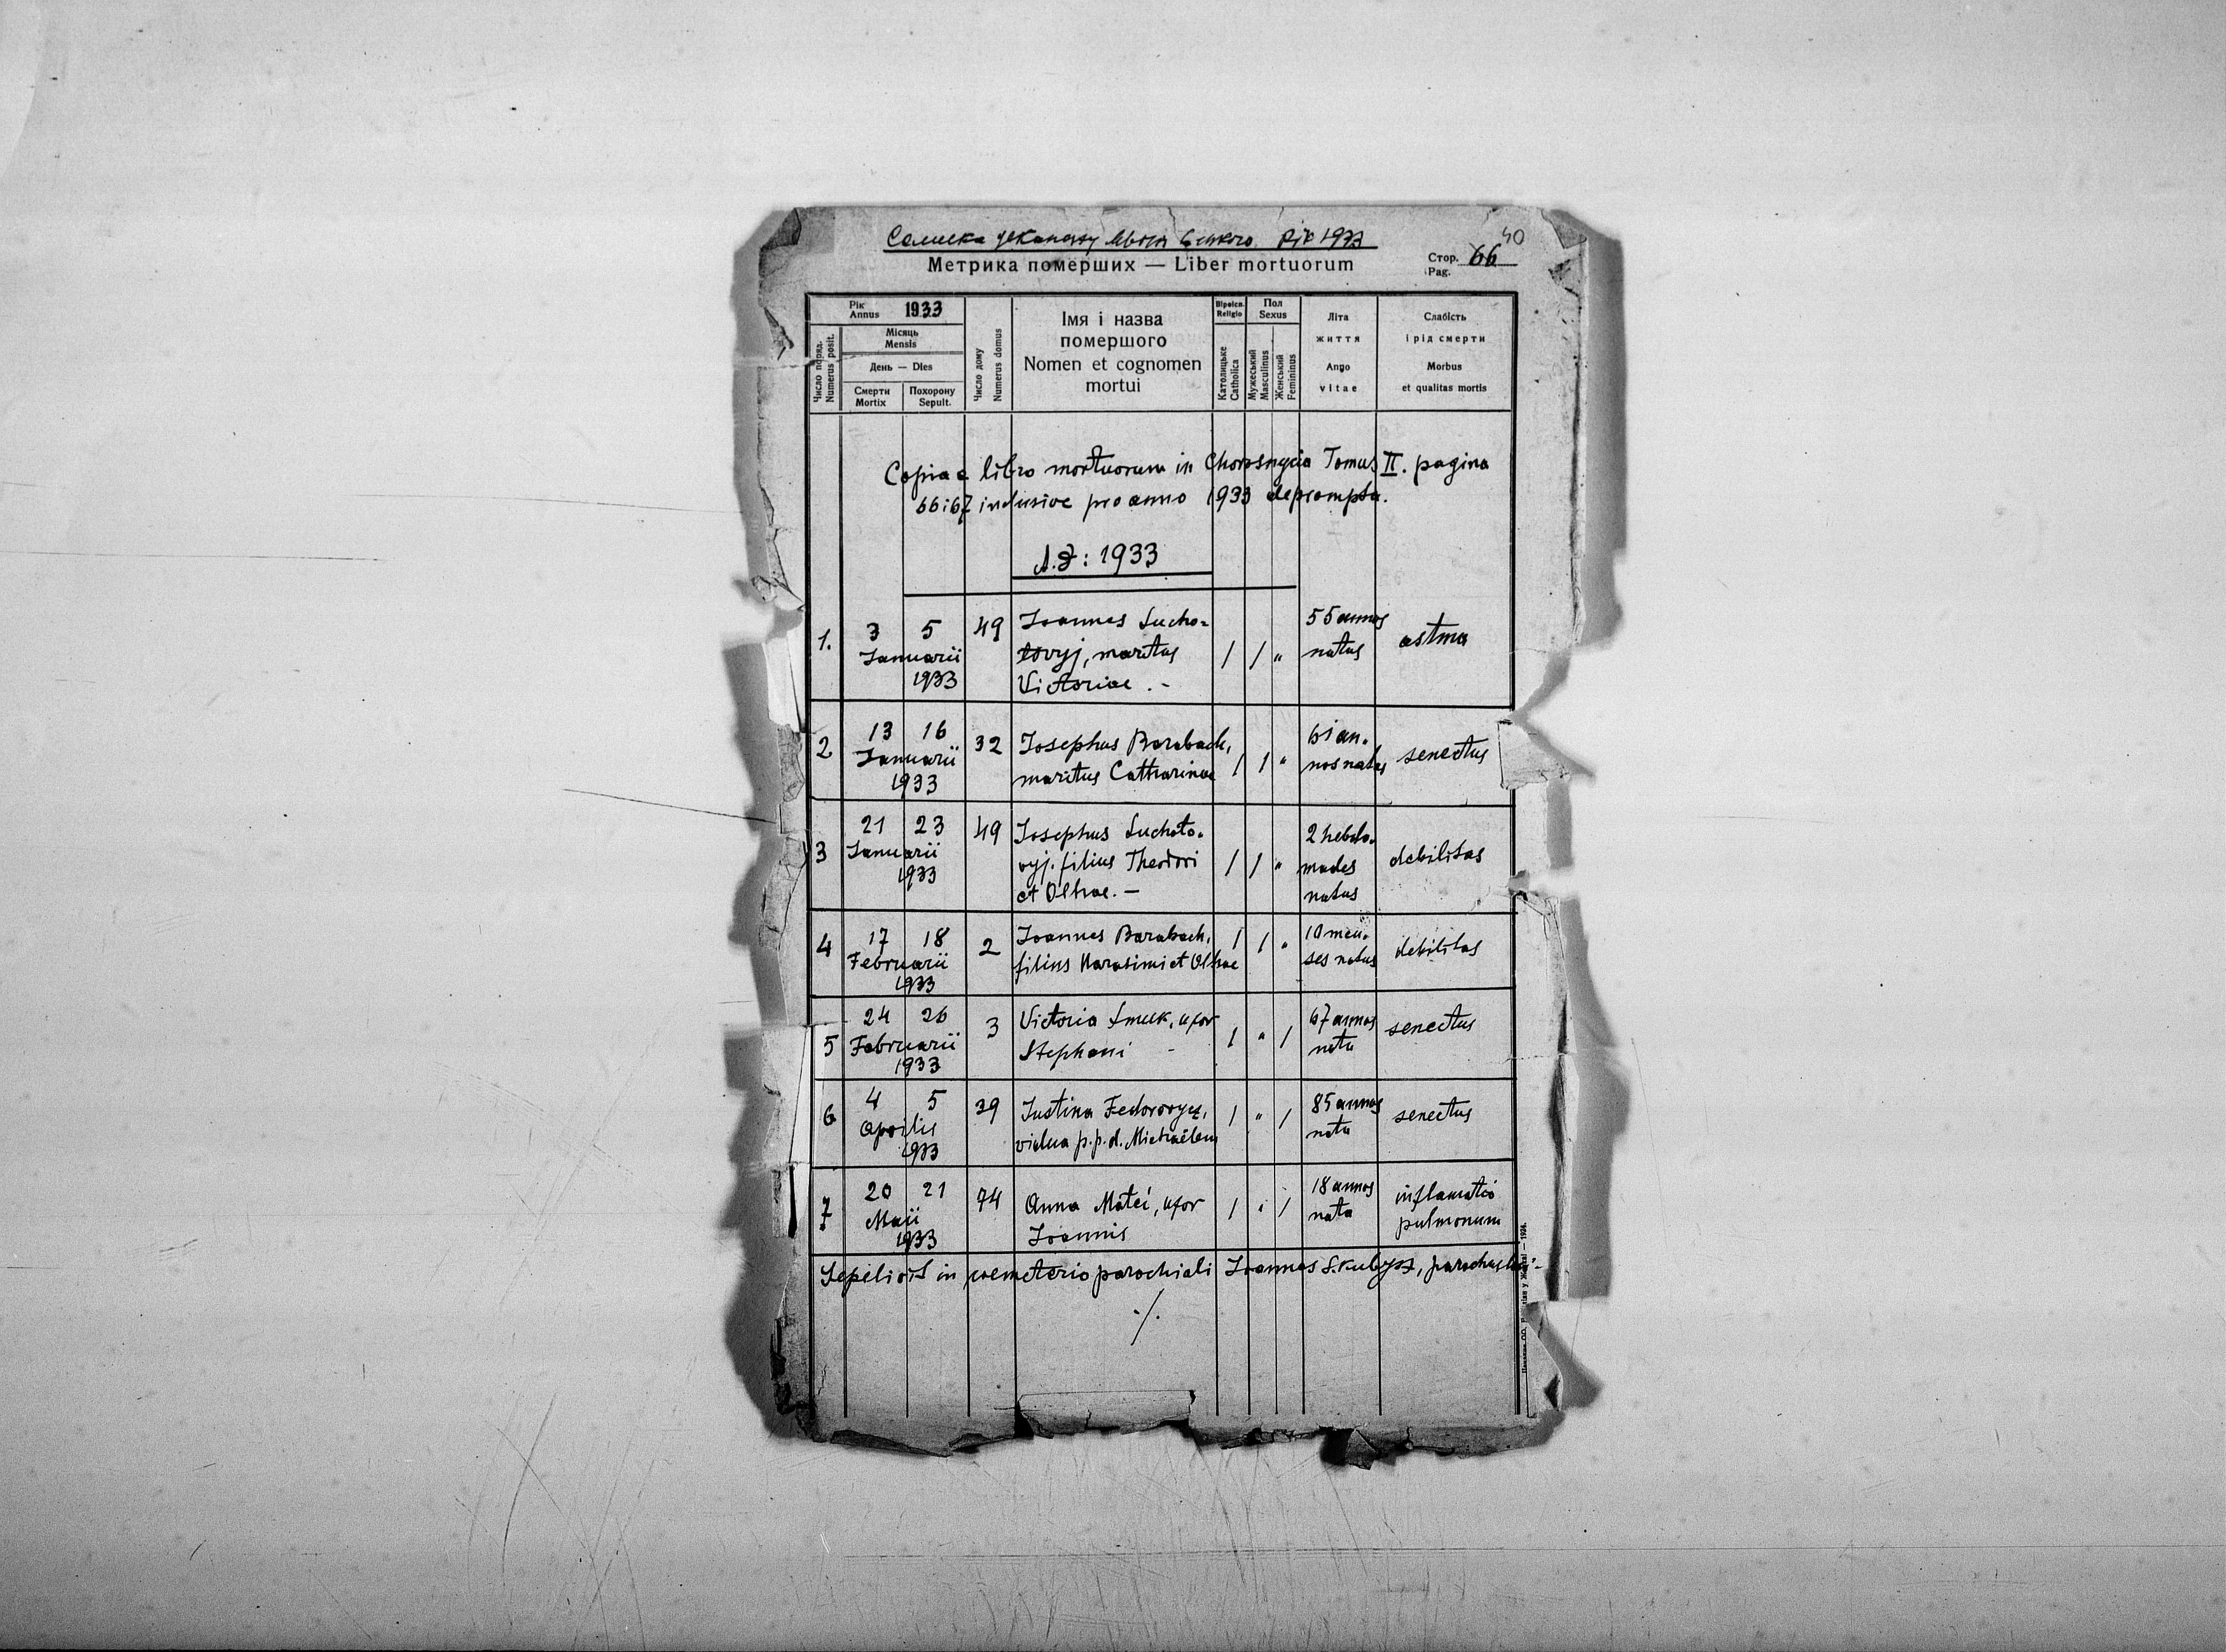 Рік 1933
40
Метрика померших — Liber mortuorum
Стор. 66
Pag.
Рік
Annus 1933
Місяць
Mensis
День — Dies
Смерти
Mortix
Похорону
Sepult.
Число поряд.
Numerus posit.
Число дому
Numerus domus
Імя і назва
помершого
Nomen et cognomen
mortui
Віроісп.
Religio
Католицьке
Catholica
Пол
Sexus
Мужеський
Masculinus
Женський
Femininus
Літа
життя
Anno
vitae
Слабість
і рід смерти
Morbus
et qualitas mortis
Copia e libro mortuorum in Tomus II. pagina
66 i 67 inclusive pro anno 1933 deprompta.
A.D: 1933
1. 3 5 49 Joannes Sucho=
Januarii tovyj, maritus / / " 55 annos
1933 Victoriae . - natus astma
2 13 16 32 Josephus Barabach, 61 an.
Januarii maritus Catharinae / / " nos natus senectus
1933
3 21 23 49 Josephus Suchoto. 2 hebdo.
Januarii vyj. filius Theodori / / " mades debilitas
1933 et Olhae. — natus
4 17 18 2 Joannes Barabach, / / " 10 men.
Februarii filius Harasimi et Olhae ses natus debilitas
1933
5 24 26 3 Victoria uxor / " / 67 annos senectus
Februarii Stephani - nata
1933
6 4 5 39 Justina Fedorovycz, / " / 85 annos senectus
Aprilis vidua p. p. d. Michaëlem nata
1933
7 20 21 74 Anna Matei, uxor / " / 18 annos inflamatio
Maii Joannis nata pulmonum
1933
Sepelivit in coemeterio parochiali Joannes parochus
./.